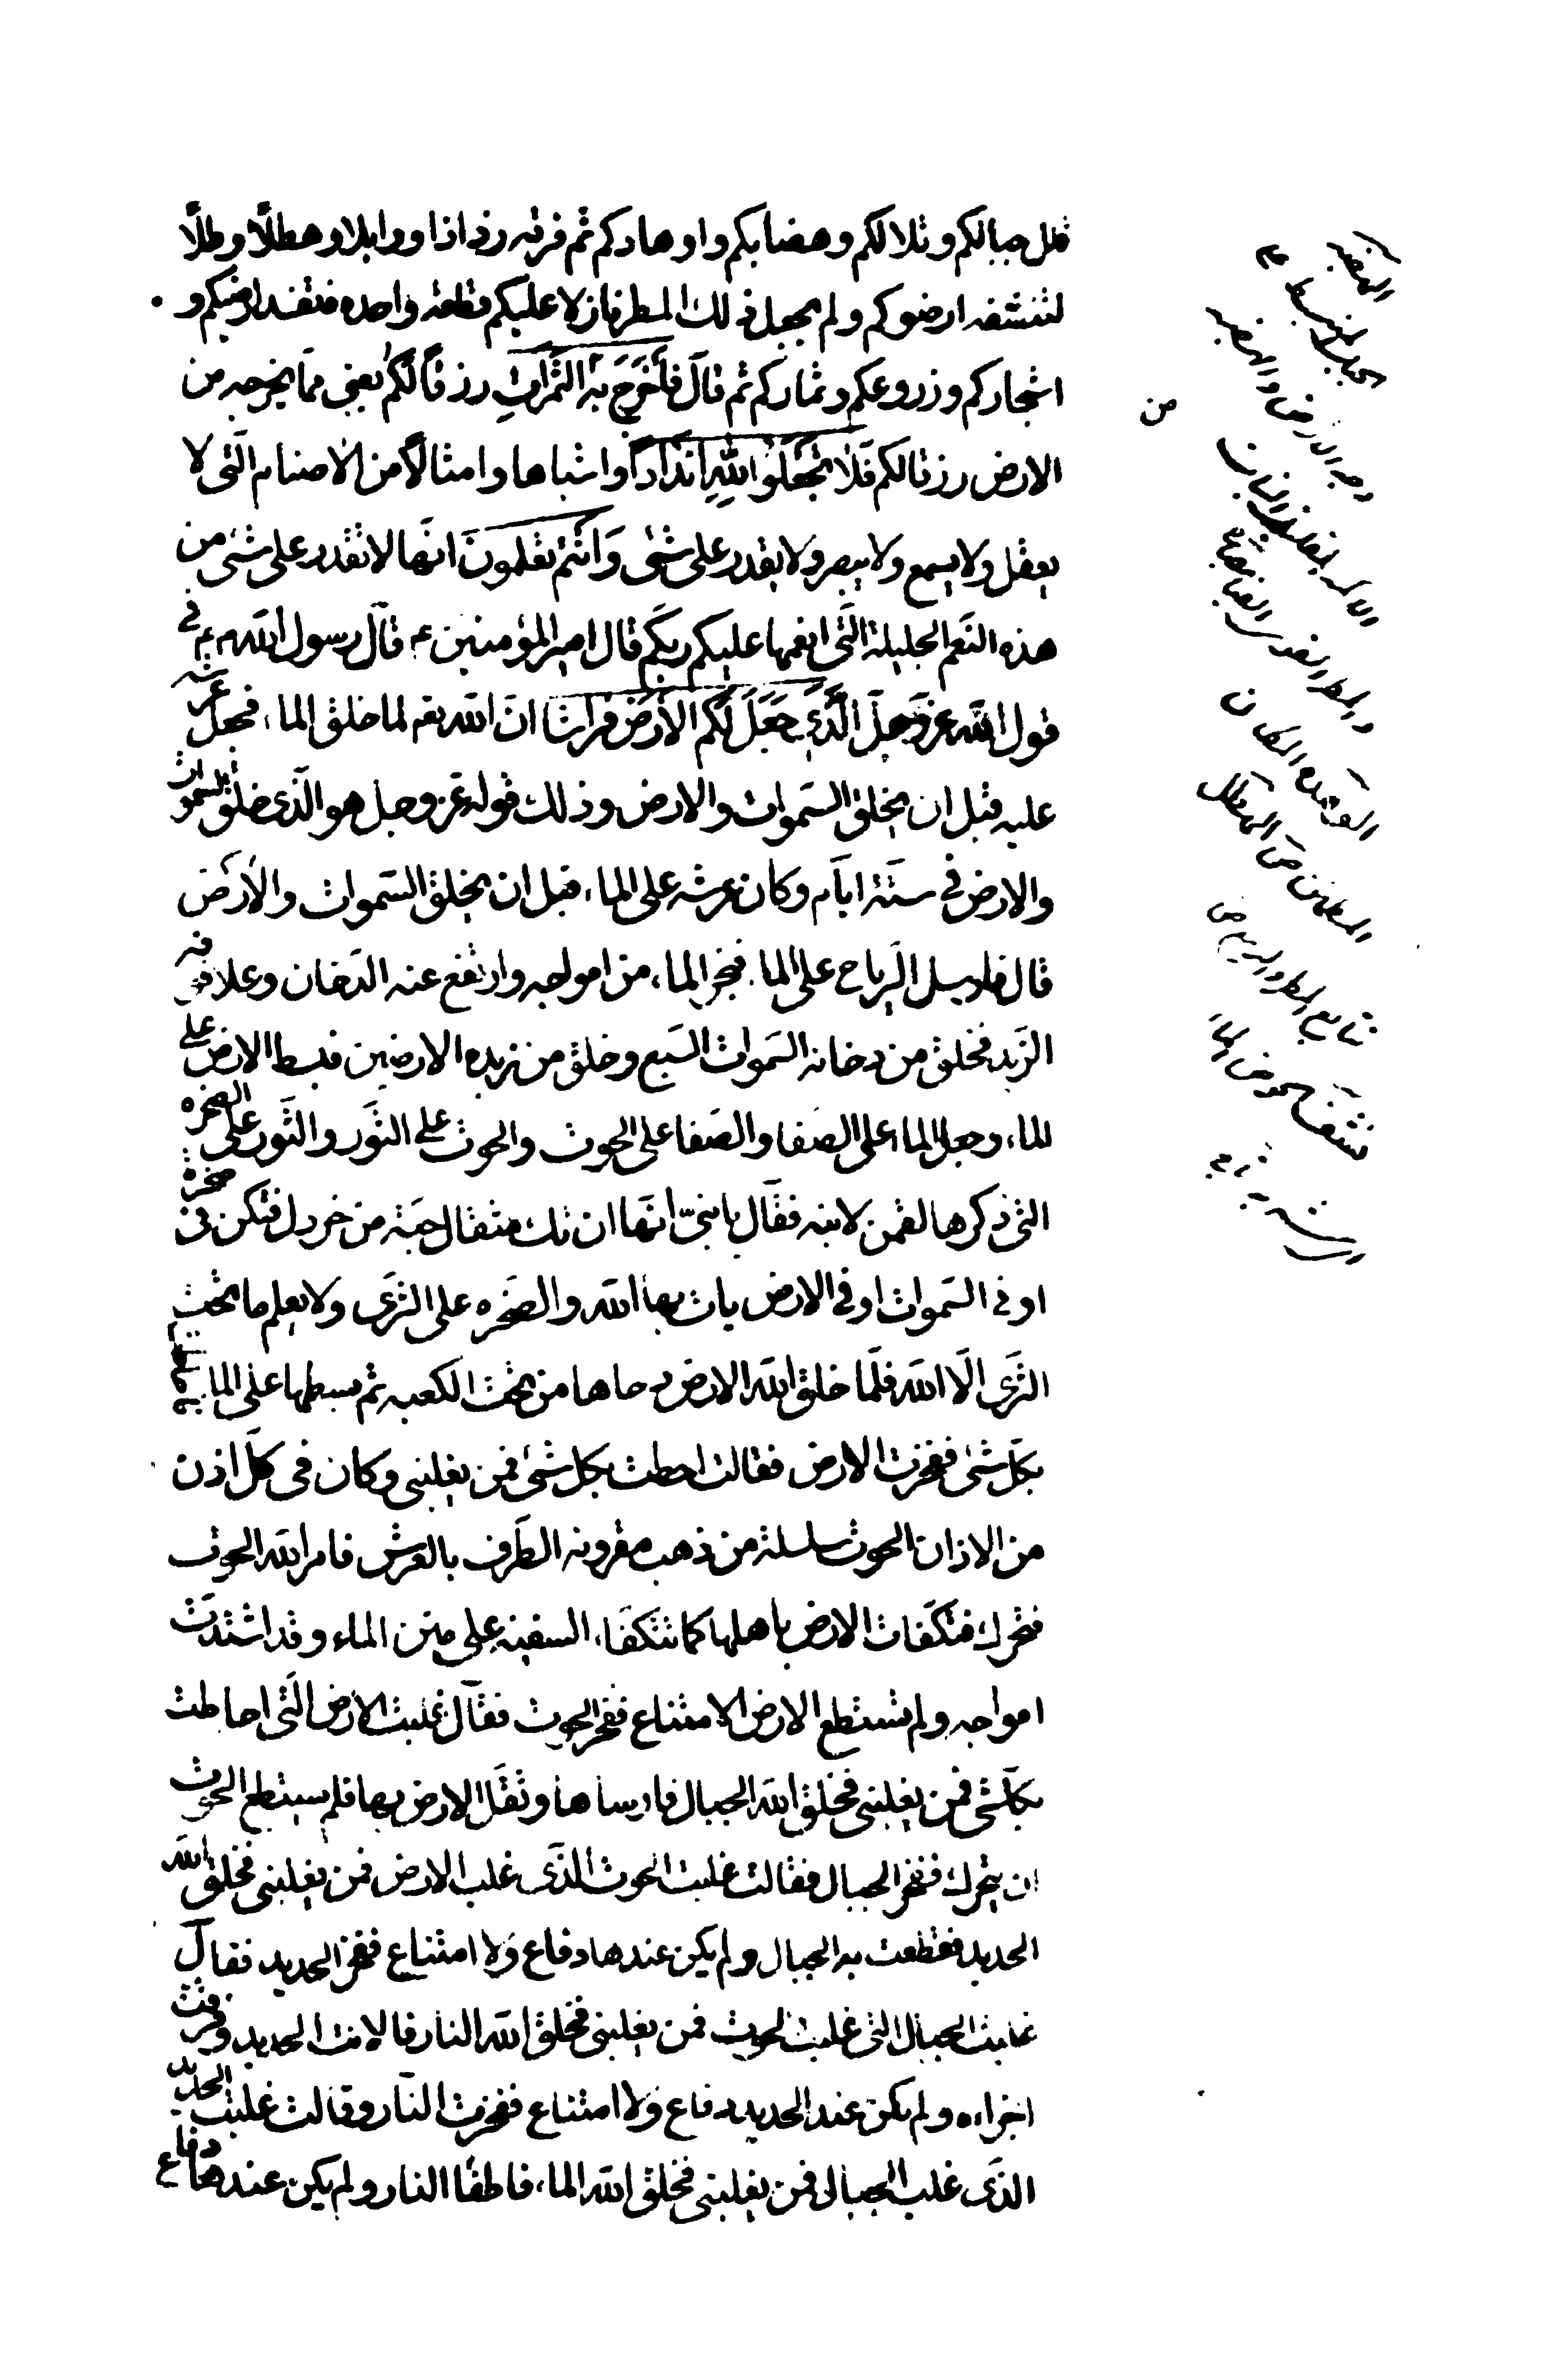 قلل جبالكم وتلالكم وهضابكم واوهادكم ثم فرقه رذاذا ووابلا وهطلاً وطلاً
لتنشفه ارضوكم ولم يجعل ذلك المطر نازلا عليكم قطعة واحده فتفسد ارضيكم و
اشجاركم وزروعكم وثماركم ثم قال فَاَخْرَجَ بِهِ الثَّمَراتِ رِزْقاً لَكُمْ يعنى ممّا يخرجه من
الارض رزقا لكم فَلا تَجْعَلُوا لِلّهِ اَنْداداً واشباها وامثالاً من الاصنام الّتى لا
يعقل ولا يسمع ولا يبصر ولا يقدر على شئ وَاَنْتُمْ تَعْلَمُونَ انّها لا تقدر على شئ من
هذه النّعم الجليلة الّتى انعمها عليكم ربّكم قال امير المؤمنين ع قال رسول الله ص فى
قول الله عزّ وجلّ الَّذى جَعَلَ لَكُمُ الاَرْضَ فراشا انّ الله تعه لما خلق الماء فجعل عرشه
عليه قبل ان يخلق السّموات والارض وذلك قوله عزّ وجل هو الّذى خلق السموات
والارض فى ستّة ايّام وكان عرشه على الماء قبل ان يخلق السّموات والارض
قال فارسل الرّياح على الماء فبخر الماء من امواجه وارتفع عنه الدّخان وعلا فوقه
الزّبد فخلق من دخانه السّموات السّبع وخلق من زبده الارضين فبسط الارض على
الماء وجعل الماء على الصّفا والصّفا على الحوت والحوت على الثّور والثّور على الصخره
التى ذكرها لقمن لابنه فقال يا بنىّ انّها ان تك مثقال حبّة من خردل فتكن فى صخرة
او فى السّموات او فى الارض يات بها الله والصّخره على الثّرى ولا يعلم ما تحت
الثّرى الّا الله فلمّا خلق الله الارض دحاها من تحت الكعبه ثم بسطها على الماء
بكلّ شئ ففخرت الارض فقالت احطت بكل شئ فمن يغلبنى وكان فى كلّ اذن
من الاذان الحوت سلسلة من ذهب مقرونه الطّرف بالعرش فامر الله الحوت
فتحرك فتكفّات الارض باهلها كما تتكفّاء السفينه على متن الماء وقد اشتدّت
امواجه ولم تستطع الارض الامتناع ففخر الحوت فقال غلبت الارض الّتى احاطت
بكلّ شئ فمن يغلبنى فخلق الله الجبال فارساها وثقّل الارض بها فلم يستطع الحوت
ان يتحرك ففخر الجبال فقالت غلبت الحوت الّذى غلب الارض فمن يغلبنى فخلق الله
الحديد فقطعت به الجبال ولم يكن عندها دفاع ولا امتناع ففخر الحديد فقال
غلبت الجبال التى غلبت الحوت فمن يغلبنى فخلق الله النار فالانت الحديد وفرقت
اجزاءه ولم يكن عند الحديد دفاع ولا امتناع ففخرت النّار وقالت غلبت الحديد
الذّى غلب الجبال فمن يغلبنى فخلق الله الماء فاطفا النار ولم يكن عندها دفاع
من